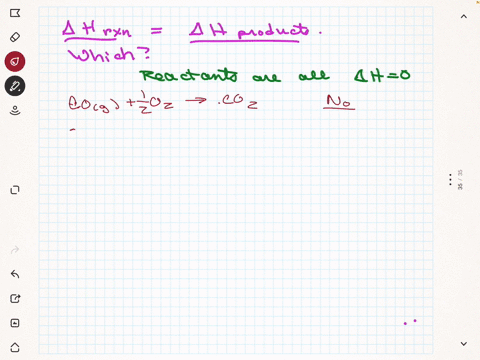 ΔH rxn = ΔH products.
Which?
Reactants are all ΔH=0
CO(g) + 1/2 O2 → CO2 No
36 / 35